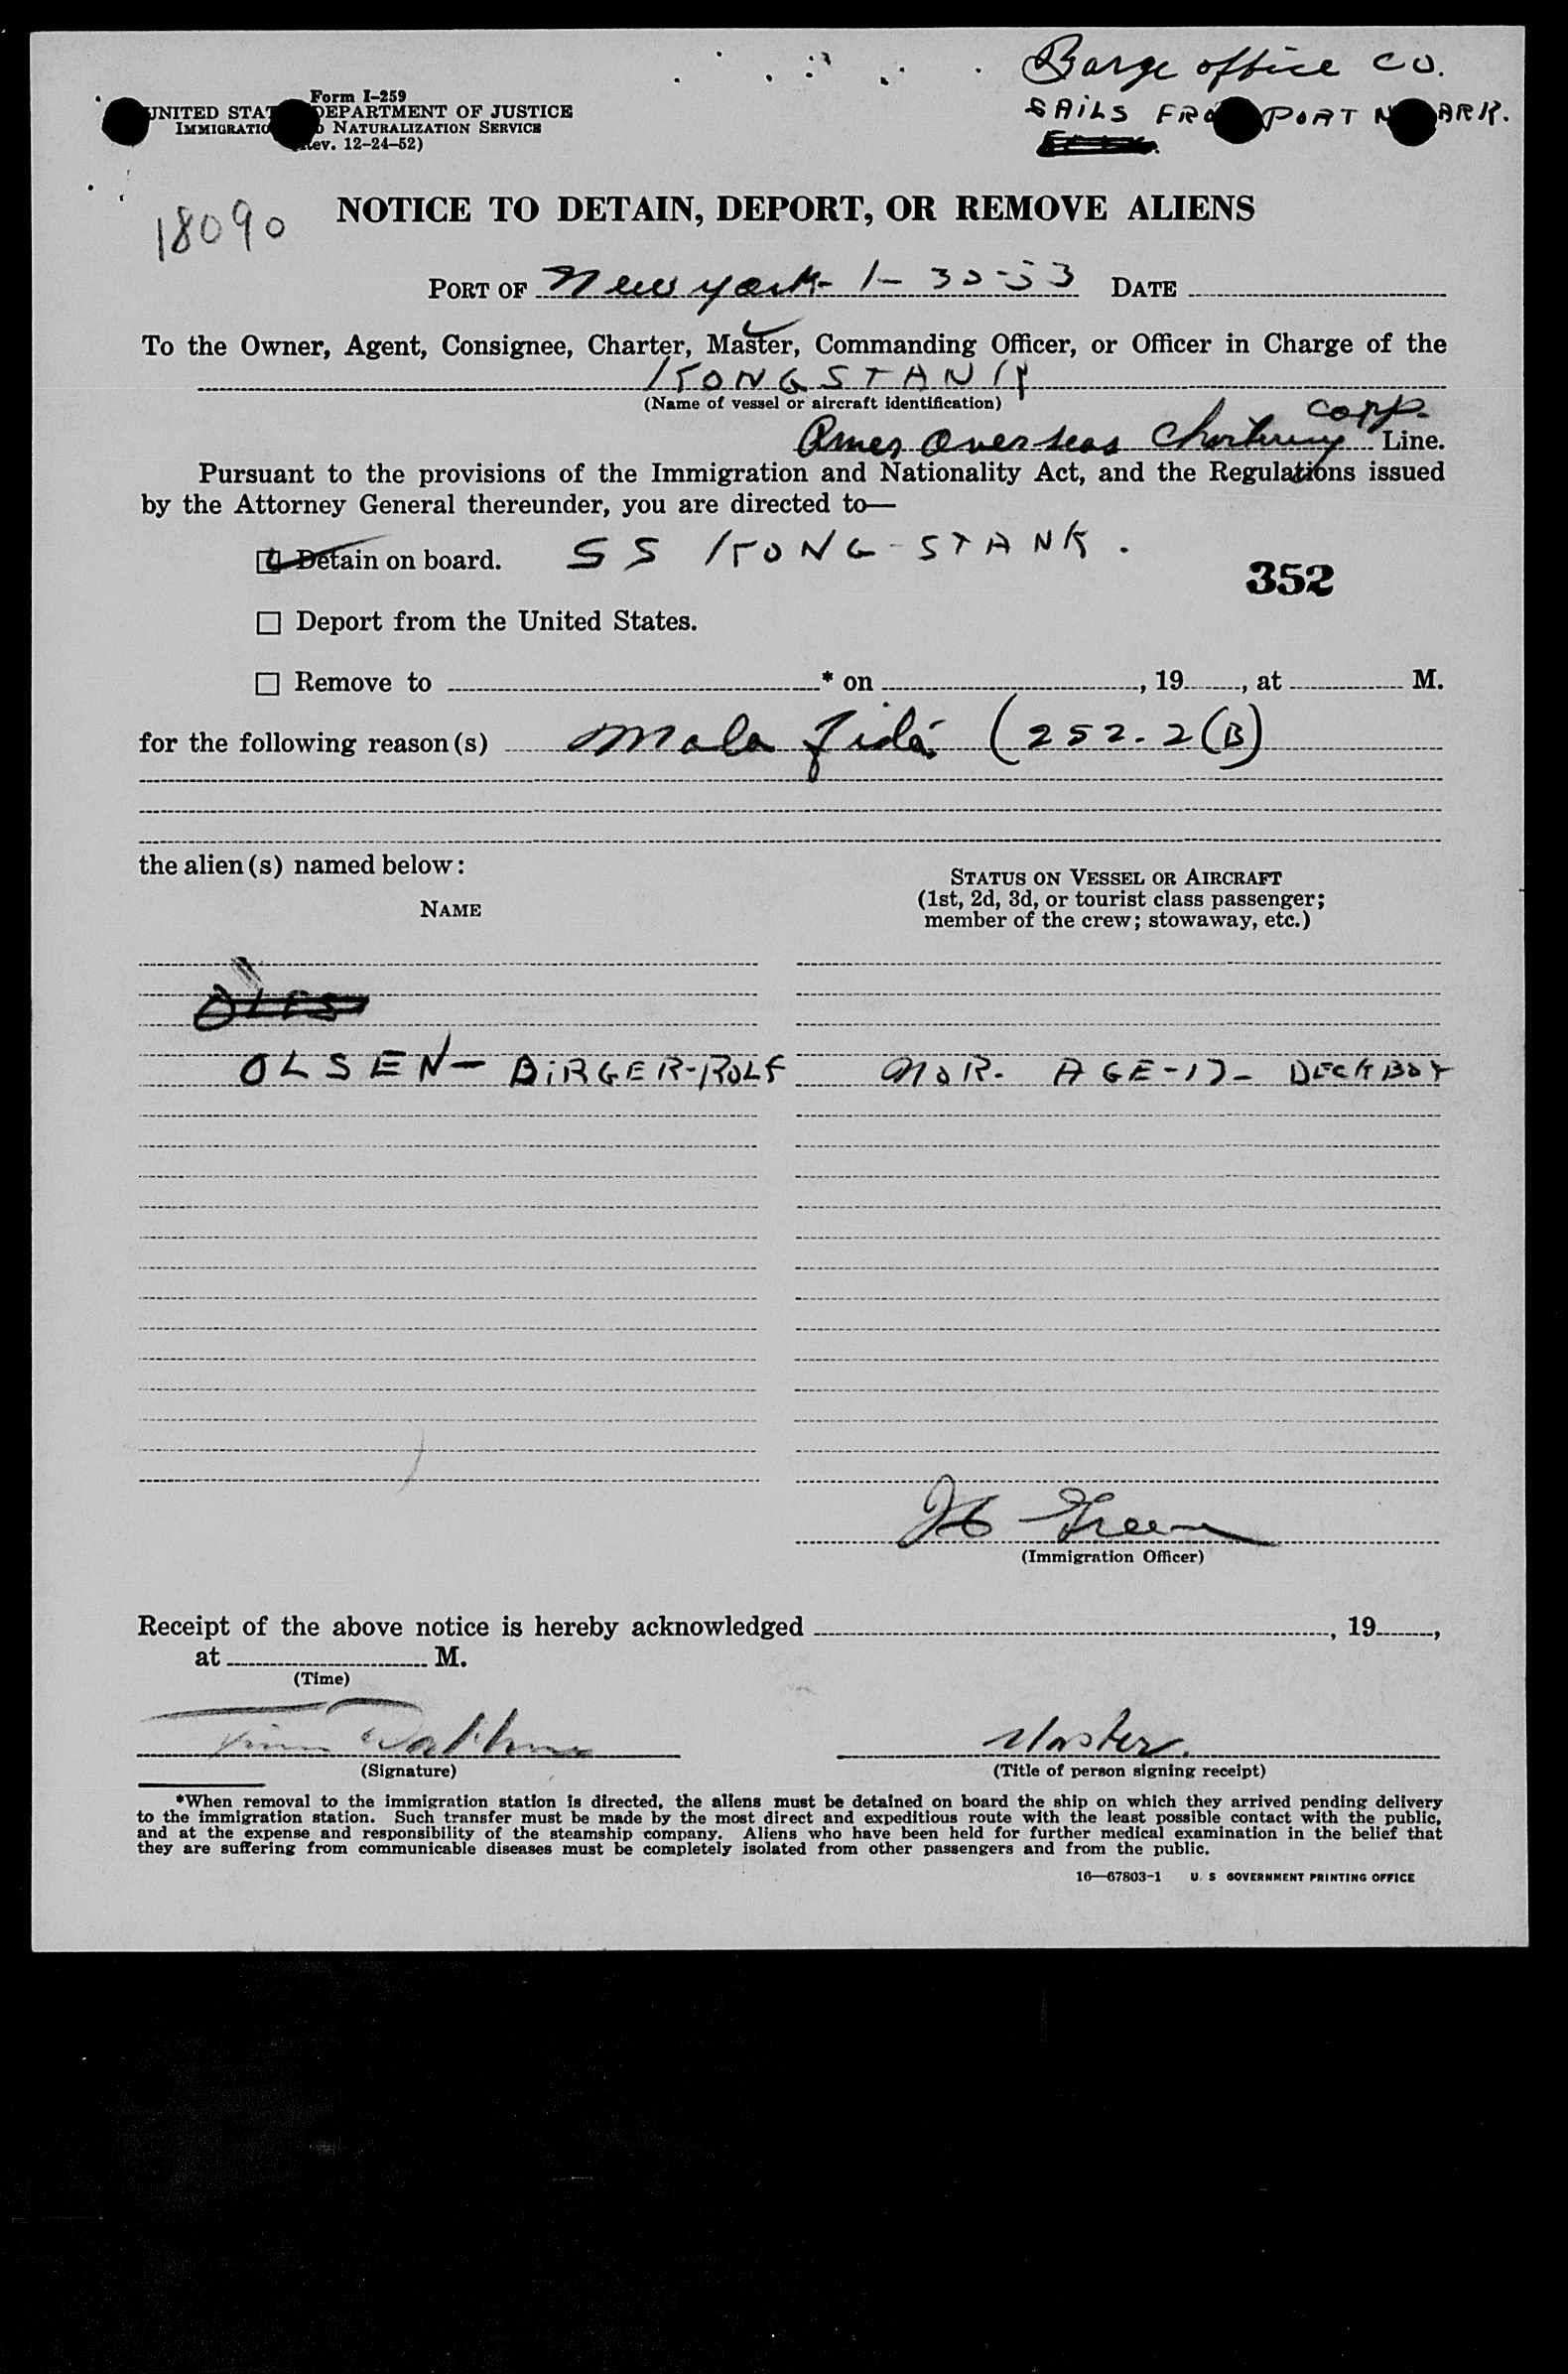 Barge office co.
SAILS FRO PORT N ARK.
Form I-259
UNITED STAT DEPARTMENT OF JUSTICE
IMMIGRATIO NATURALIZATION SERVICE
ev. 12-24-52)
18090
NOTICE TO DETAIN, DEPORT, OR REMOVE ALIENS
PORT OF New york - 1-30-53 DATE
To the Owner, Agent, Consignee, Charter, Master, Commanding Officer, or Officer in Charge of the
KONGSTANK
(Name of vessel or aircraft identification)
Overseas Chartering corp. Line.
Pursuant to the provisions of the Immigration and Nationality Act, and the Regulations issued
by the Attorney General thereunder, you are directed to—
Detain on board. SS KONG-STANK.
352
Deport from the United States.
Remove to * on , 19 , at M.
for the following reason(s) Mala fide (252.2(B)
the alien(s) named below:
STATUS ON VESSEL OR AIRCRAFT
NAME
(1st, 2d, 3d, or tourist class passenger;
member of the crew; stowaway, etc.)
OLSEN - BIRGER-ROLF NOR. AGE-17- DECKBOY
Green
(Immigration Officer)
Receipt of the above notice is hereby acknowledged , 19 ,
at M.
(Time)
Master.
(Signature) (Title of person signing receipt)
*When removal to the immigration station is directed, the aliens must be detained on board the ship on which they arrived pending delivery
to the immigration station. Such transfer must be made by the most direct and expeditious route with the least possible contact with the public,
and at the expense and responsibility of the steamship company. Aliens who have been held for further medical examination in the belief that
they are suffering from communicable diseases must be completely isolated from other passengers and from the public.
16—67803-1 U. S GOVERNMENT PRINTING OFFICE